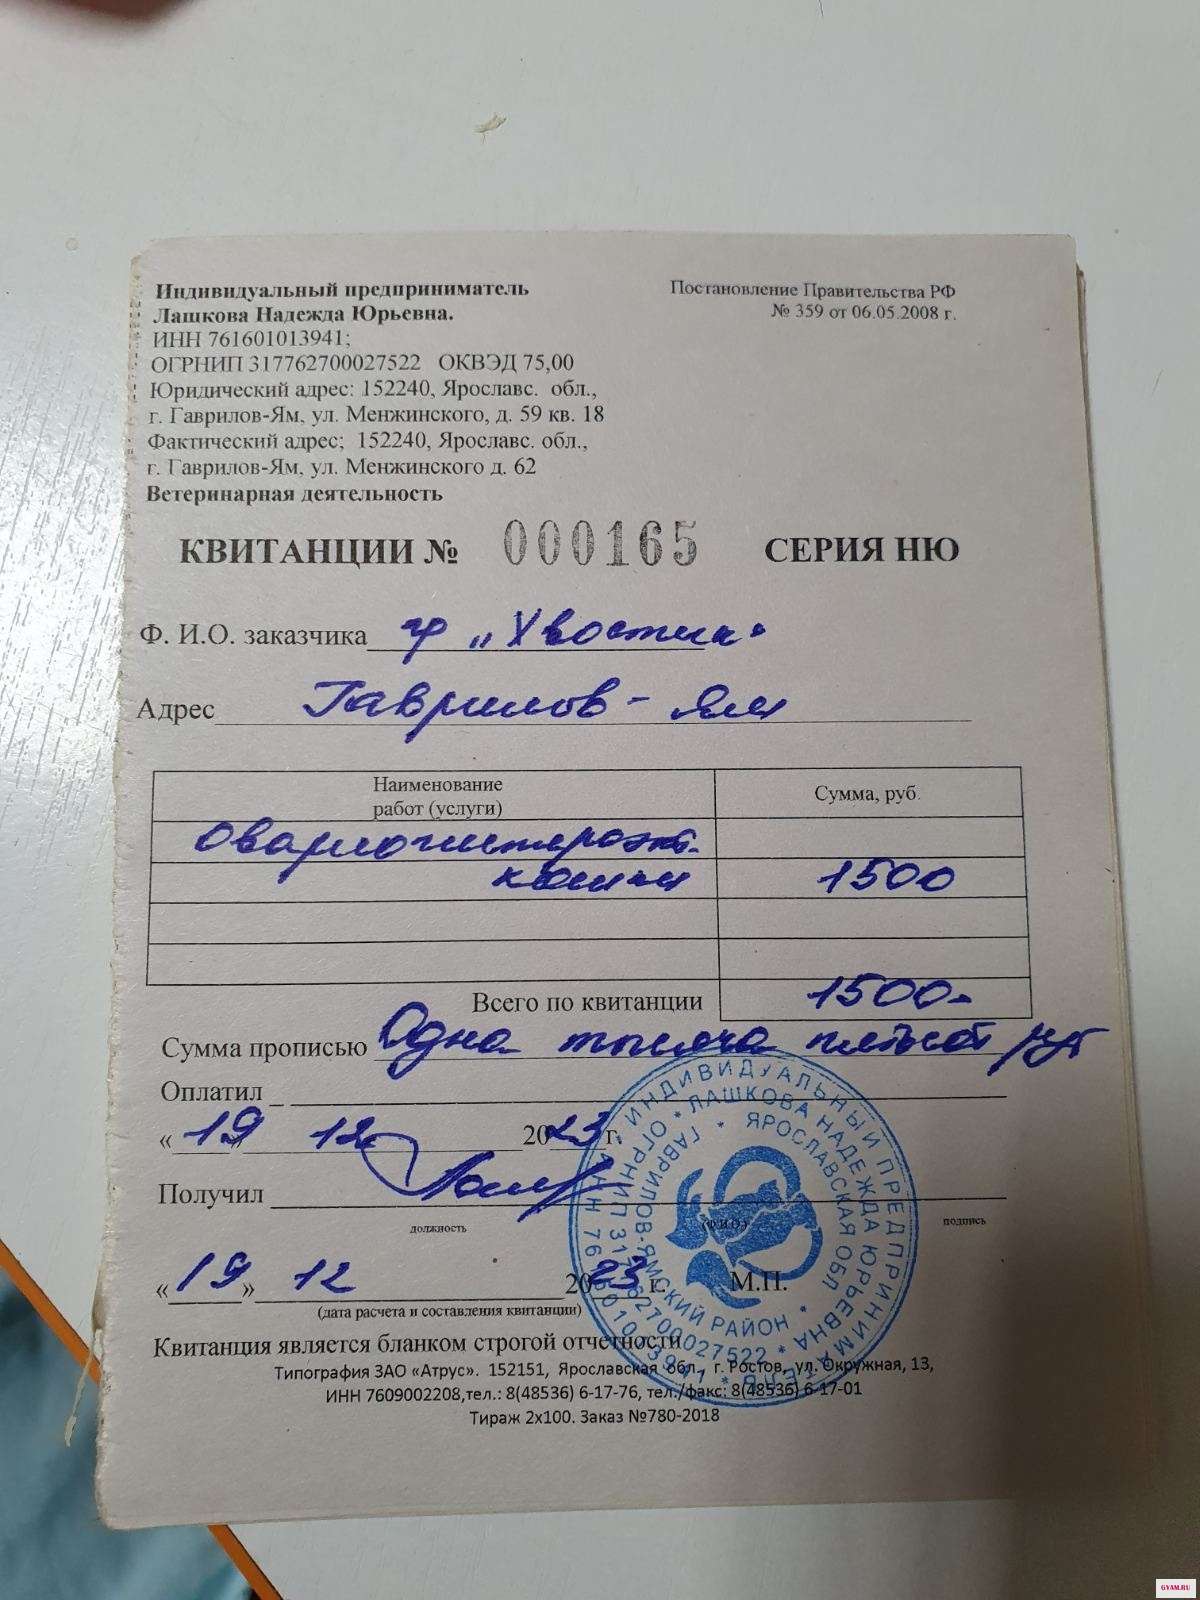 Индивидуальный предприниматель
Лашкова Надежда Юрьевна.
ИНН 761601013941;
ОГРНИП 317762700027522 ОКВЭД 75,00
Юридический адрес: 152240, Ярославс. обл.,
г. Гаврилов-Ям, ул. Менжинского, д. 59 кв. 18
Фактический адрес; 152240, Ярославс. обл.,
г. Гаврилов-Ям, ул. Менжинского д. 62
Ветеринарная деятельность
Постановление Правительства РФ
№ 359 от 06.05.2008 г.
КВИТАНЦИИ № 000165 СЕРИЯ НЮ
Ф. И.О. заказчика гр „Хвостики"
Адрес Гаврилов-Ям
Наименование
работ (услуги)
Сумма, руб.
Овариогистерэкт.
кошки 1500
Всего по квитанции 1500-
Сумма прописью Одна тысяча пятьсот руб
Оплатил
« 19 » 12 2023 г.
Получил
должность (Ф.И.О) подпись
« 19 » 12 2023 г. М.П.
(дата расчета и составления квитанции)
Квитанция является бланком строгой отчетности
Типография ЗАО «Атрус». 152151, Ярославская обл., г. Ростов, ул. Окружная, 13,
ИНН 7609002208,тел.: 8(48536) 6-17-76, тел./факс: 8(48536) 6-17-01
Тираж 2х100. Заказ №780-2018
ИНДИВИДУАЛЬНЫЙ ПРЕДПРИНИМАТЕЛЬ * ИНН 761601013941 *
ЛАШКОВА НАДЕЖДА ЮРЬЕВНА * ОГРНИП 317762700027522 *
ЯРОСЛАВСКАЯ ОБЛ * ГАВРИЛОВ-ЯМСКИЙ РАЙОН *
GYAM.RU